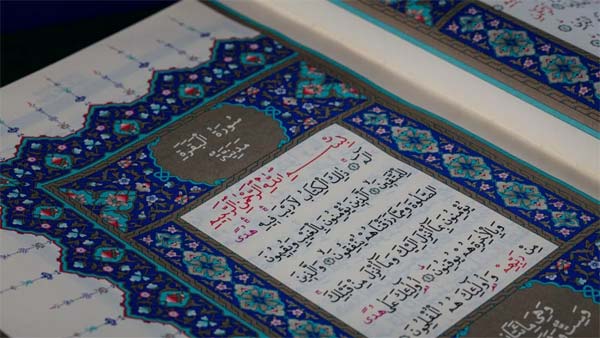 سُورَةُ الْبَقَرَةِ
مَدَنِيَّة
بِسْمِ اللَّهِ الرَّحْمٰنِ الرَّحِيمِ
الٓمٓ ۝ ذٰلِكَ الْكِتَابُ لَا رَيْبَ فِيهِ هُدًى
لِلْمُتَّقِينَ ۝ الَّذِينَ يُؤْمِنُونَ بِالْغَيْبِ وَيُقِيمُونَ
الصَّلٰوةَ وَمِمَّا رَزَقْنَاهُمْ يُنْفِقُونَ ۝ وَالَّذِينَ
يُؤْمِنُونَ بِمَا أُنْزِلَ إِلَيْكَ وَمَا أُنْزِلَ مِنْ قَبْلِكَ
وَبِالْآخِرَةِ هُمْ يُوقِنُونَ ۝ أُولٰئِكَ عَلَىٰ هُدًى
مِنْ رَبِّهِمْ وَأُولٰئِكَ هُمُ الْمُفْلِحُونَ